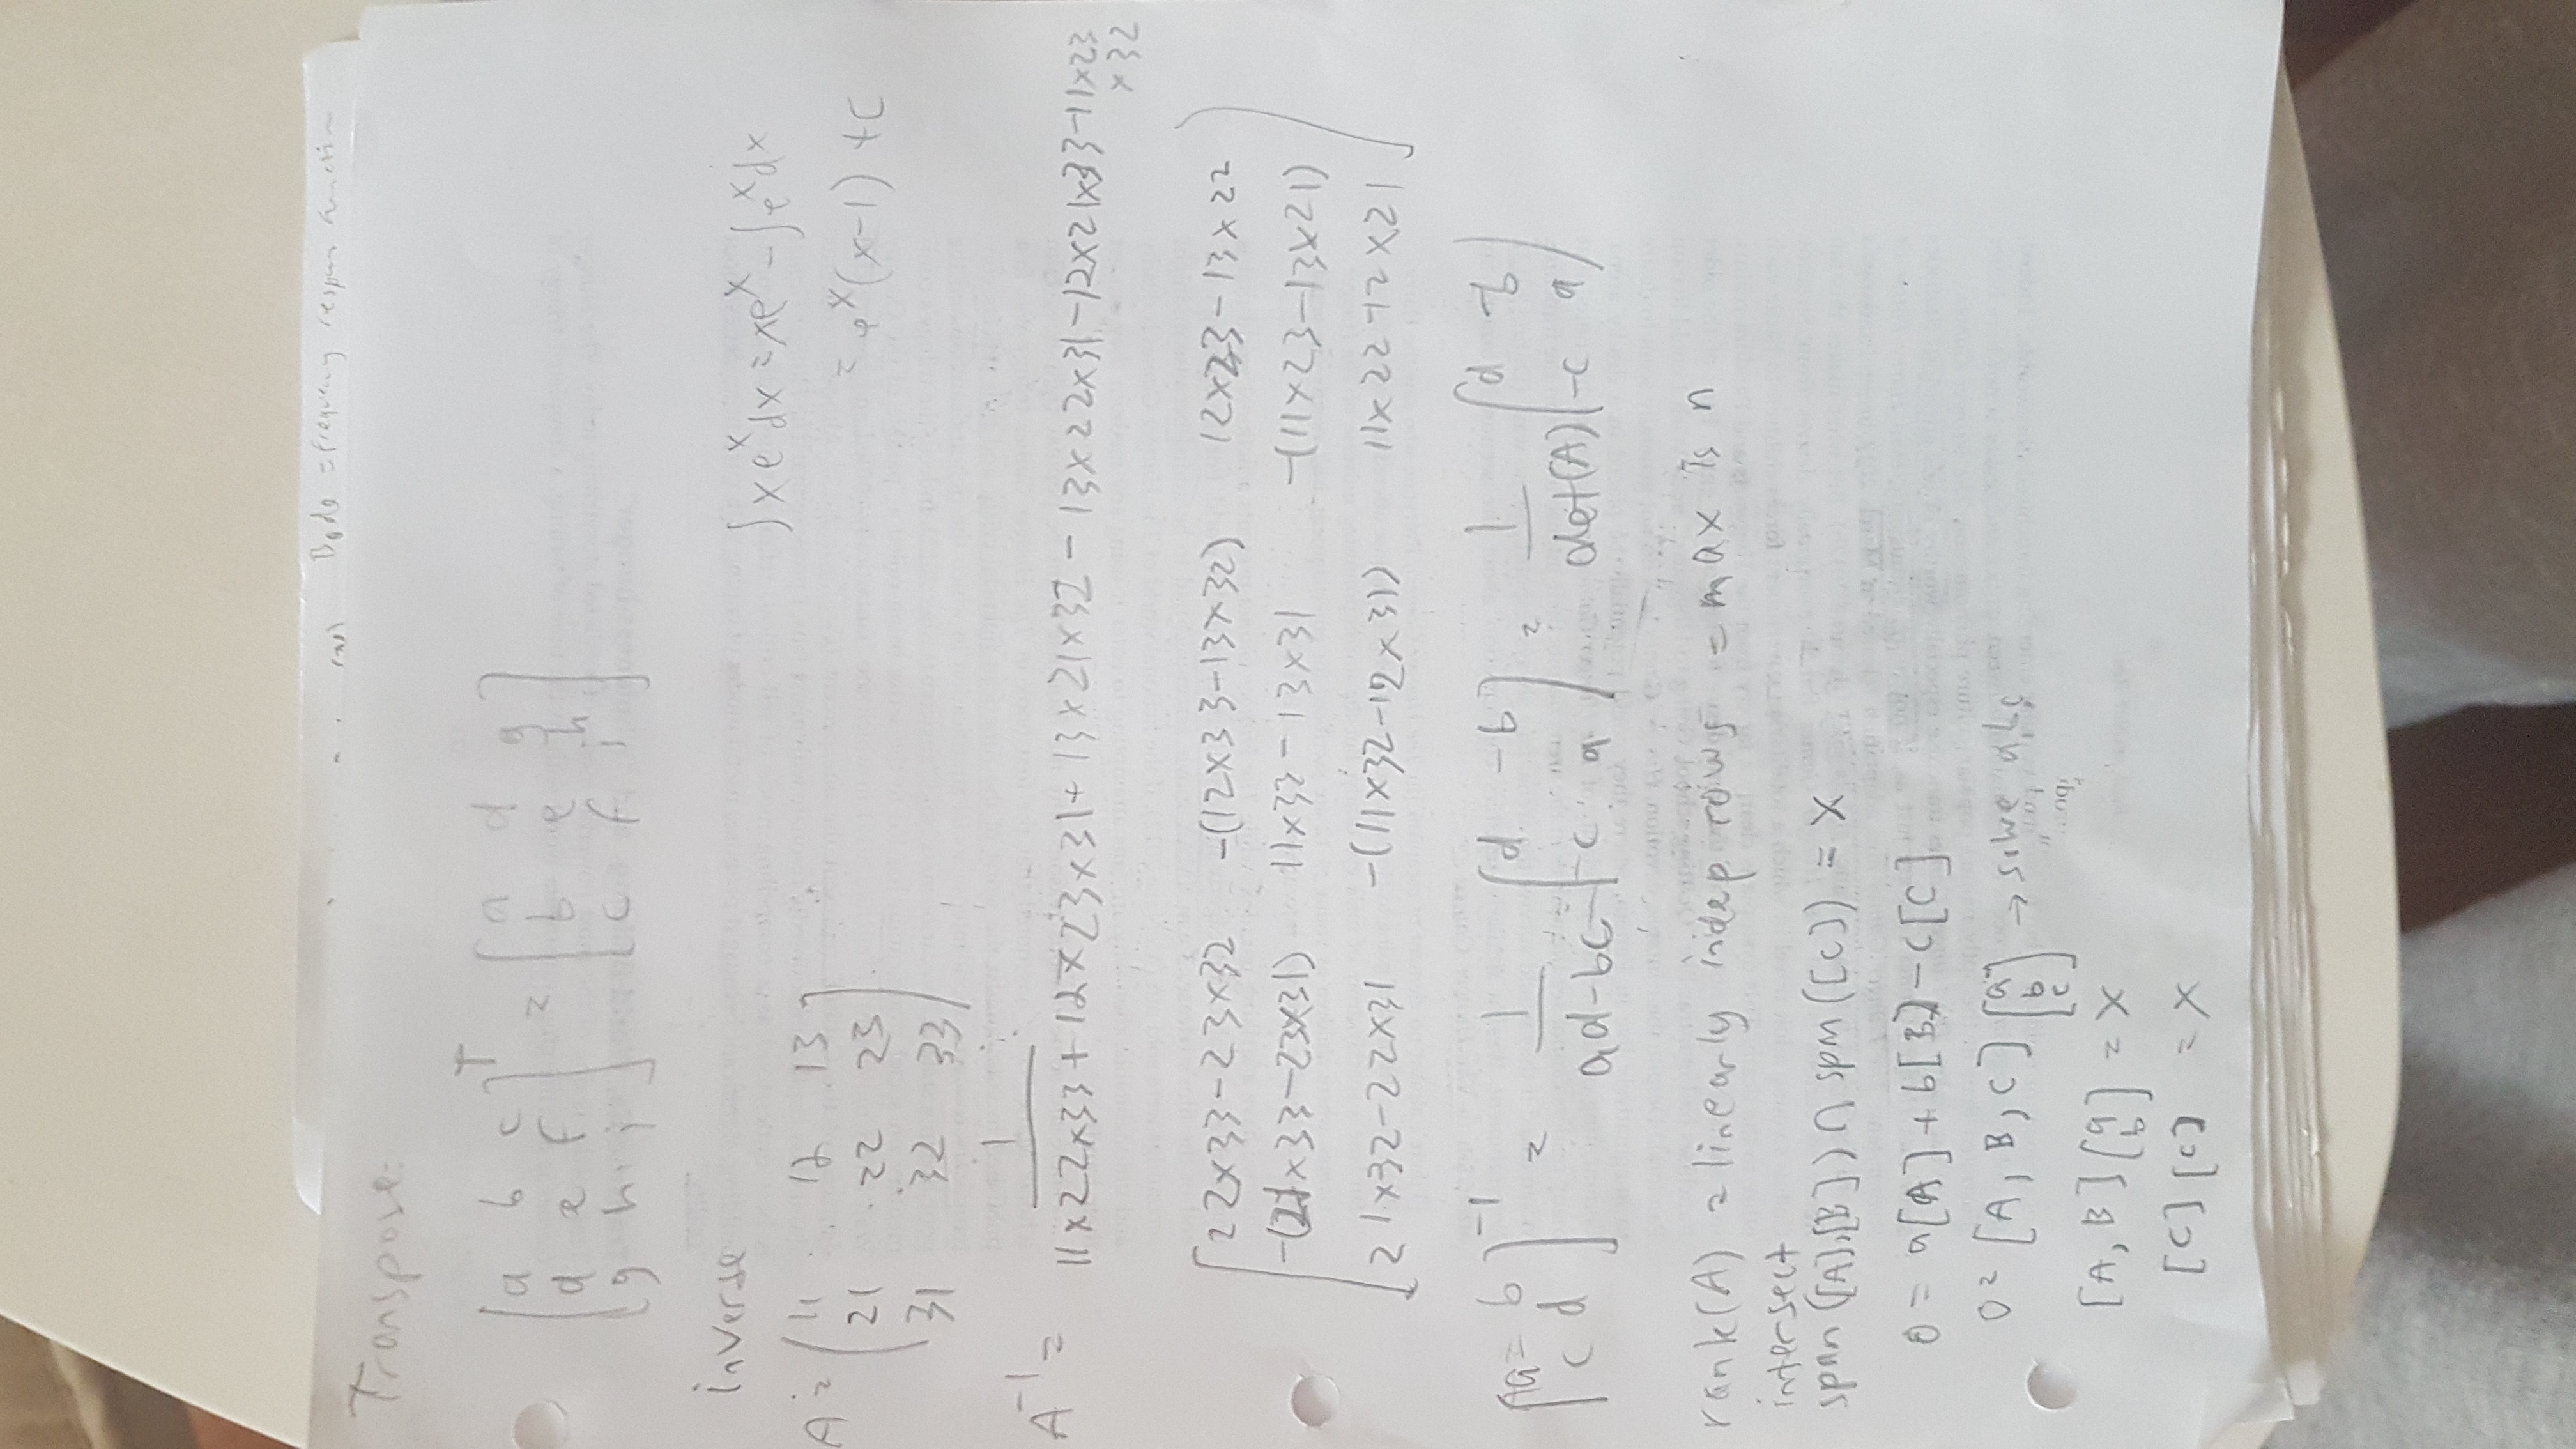 Bode = frequency respons function
Transpose:
[a b c]ᵀ = [a d g]
[d e f] [b e h]
[g h i] [c f i]
inverse
∫xeˣdx = xeˣ - ∫eˣdx
= eˣ(x-1) + C
A = (11 12 13)
21 22 23
31 32 33
A⁻¹ = 1
11x22x33 + 12x23x31 + 13x21x32 - 13x22x31 - 12x21x33 - 11x23
x32
22x33-23x32 -(12x33-13x32) 12x33-13x22
-(21x33-23x31) 11x33-13x31 -(11x23-13x21)
21x32-22x31 -(11x32-12x31) 11x22-12x21
[Aa= b]⁻¹ = 1 [d -b] = 1 [d -b]
c d ad-bc -c a det(A) -c a
rank(A) = linearly indep rows = max is n
intersect
span([A],[B]) ∩ span([C]) = x
0 = a[A] + b[B] - c[C]
0 = [A, B, C] [a b c] → solve abc
[A, B] [a b] = x
[C] [c] = x